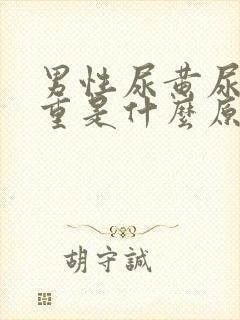 男性尿黄尿
重是什麼原
胡守誠